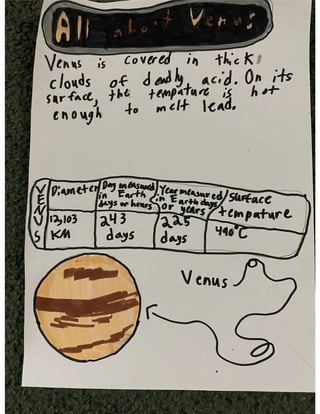 All about Venus
Venus is covered in thick
clouds of deadly acid. On its
surface, the tempature is hot
enough to melt lead.
VENUS
Diameter
Day measured
in Earth
days or hours
Year measured
in Earth days
or years
Surface
tempature
12,103
KM
243
days
225
days
490°C
Venus